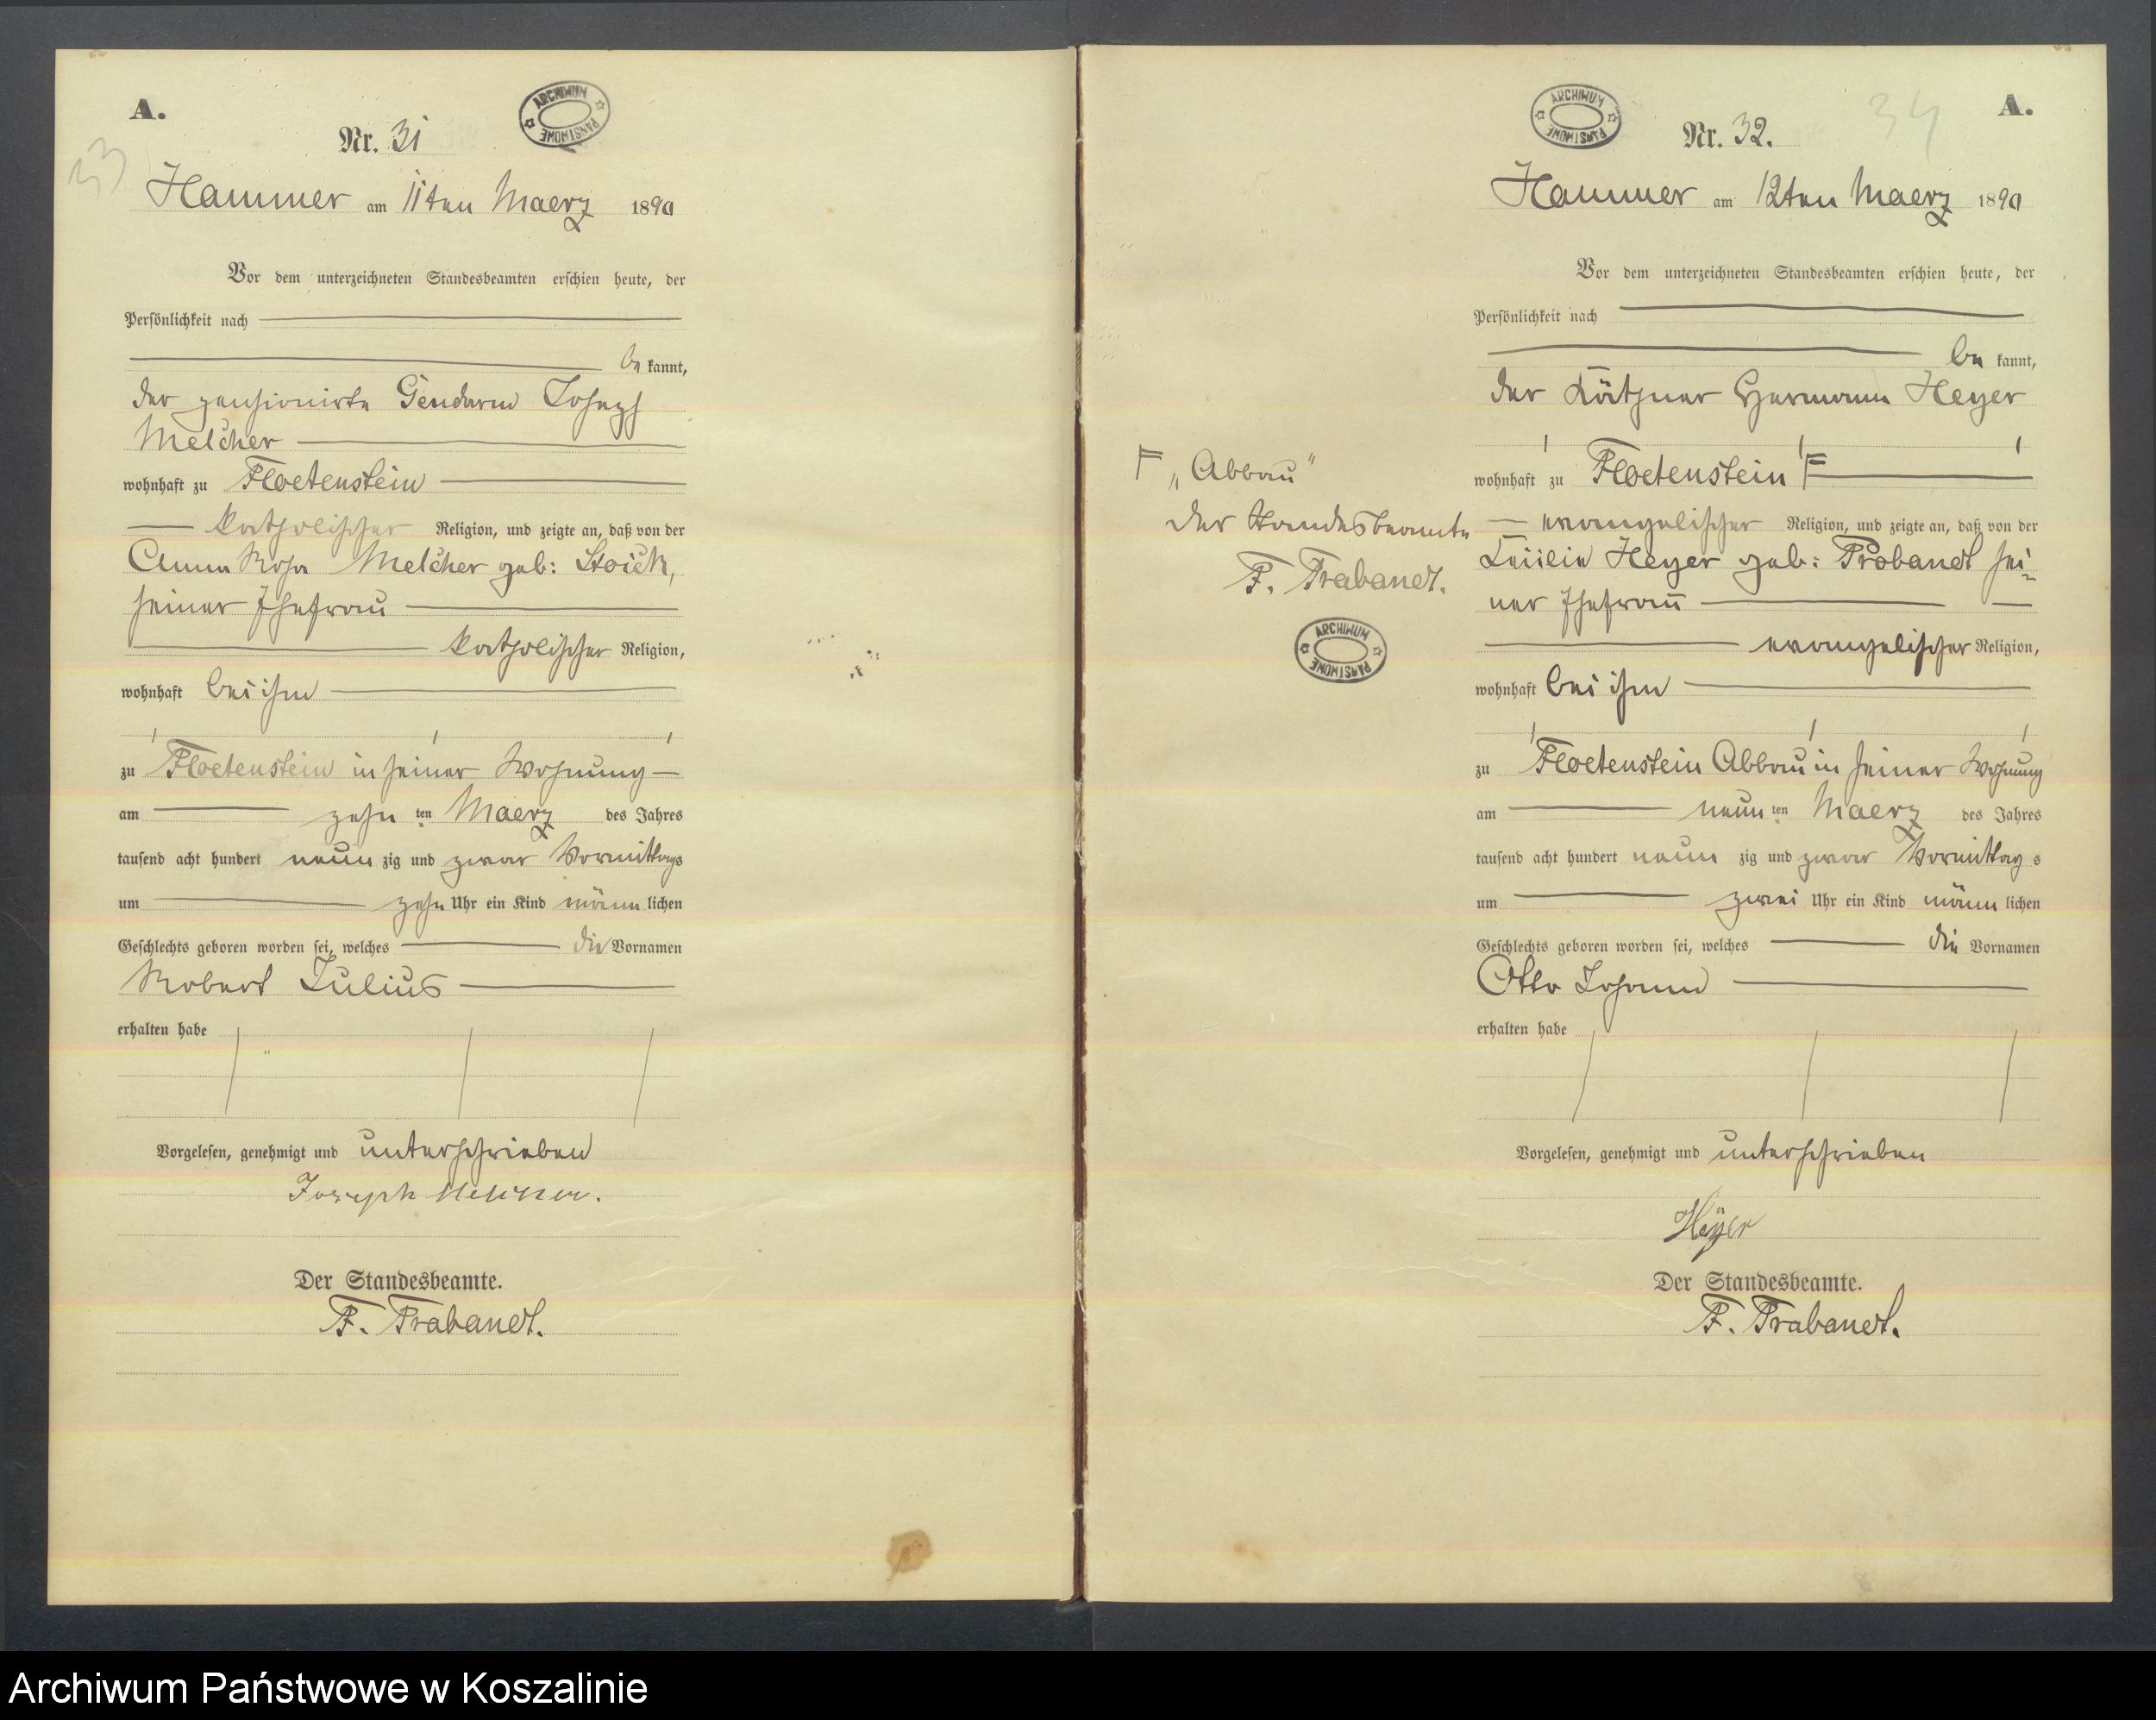 A.
Nr. 31
ARCHIWUM PAŃSTWOWE
33
Hammer am 11ten Maerz 1890
Vor dem unterzeichneten Standesbeamten erschien heute, der
Persönlichkeit nach
be kannt,
der pensionirte Gendarm Joseph
Melcher
wohnhaft zu Floetenstein
katholischer Religion, und zeigte an, daß von der
Anna Rosa Melcher geb:
seiner Ehefrau
katholischer Religion,
wohnhaft bei ihm
zu Floetenstein in seiner Wohnung
am zehn ten Maerz des Jahres
tausend acht hundert neun zig und zwar Vormittags
um zehn Uhr ein Kind männ lichen
Geschlechts geboren worden sei, welches die Vornamen
Robert Julius
erhalten habe
Vorgelesen, genehmigt und unterschrieben
Joseph Melcher.
Der Standesbeamte.
F. Trabandt.
A.
34
Nr. 32.
ARCHIWUM PAŃSTWOWE
Hammer am 12ten Maerz 1890
Vor dem unterzeichneten Standesbeamten erschien heute, der
Persönlichkeit nach
be kannt,
der Käthner Hermann Heyer
wohnhaft zu Floetenstein F
F „Abbau"
der Standesbeamte
F. Trabandt.
ARCHIWUM PAŃSTWOWE
evangelischer Religion, und zeigte an, daß von der
Heyer geb: Trabandt sei-
ner Ehefrau
evangelischer Religion,
wohnhaft bei ihm
zu Floetenstein Abbau in seiner Wohnung
am neun ten Maerz des Jahres
tausend acht hundert neun zig und zwar Vormittag s
um zwei Uhr ein Kind männ lichen
Geschlechts geboren worden sei, welches die Vornamen
Otto Johann
erhalten habe
Vorgelesen, genehmigt und unterschrieben
Heÿer
Der Standesbeamte.
F. Trabandt.
Archiwum Państwowe w Koszalinie